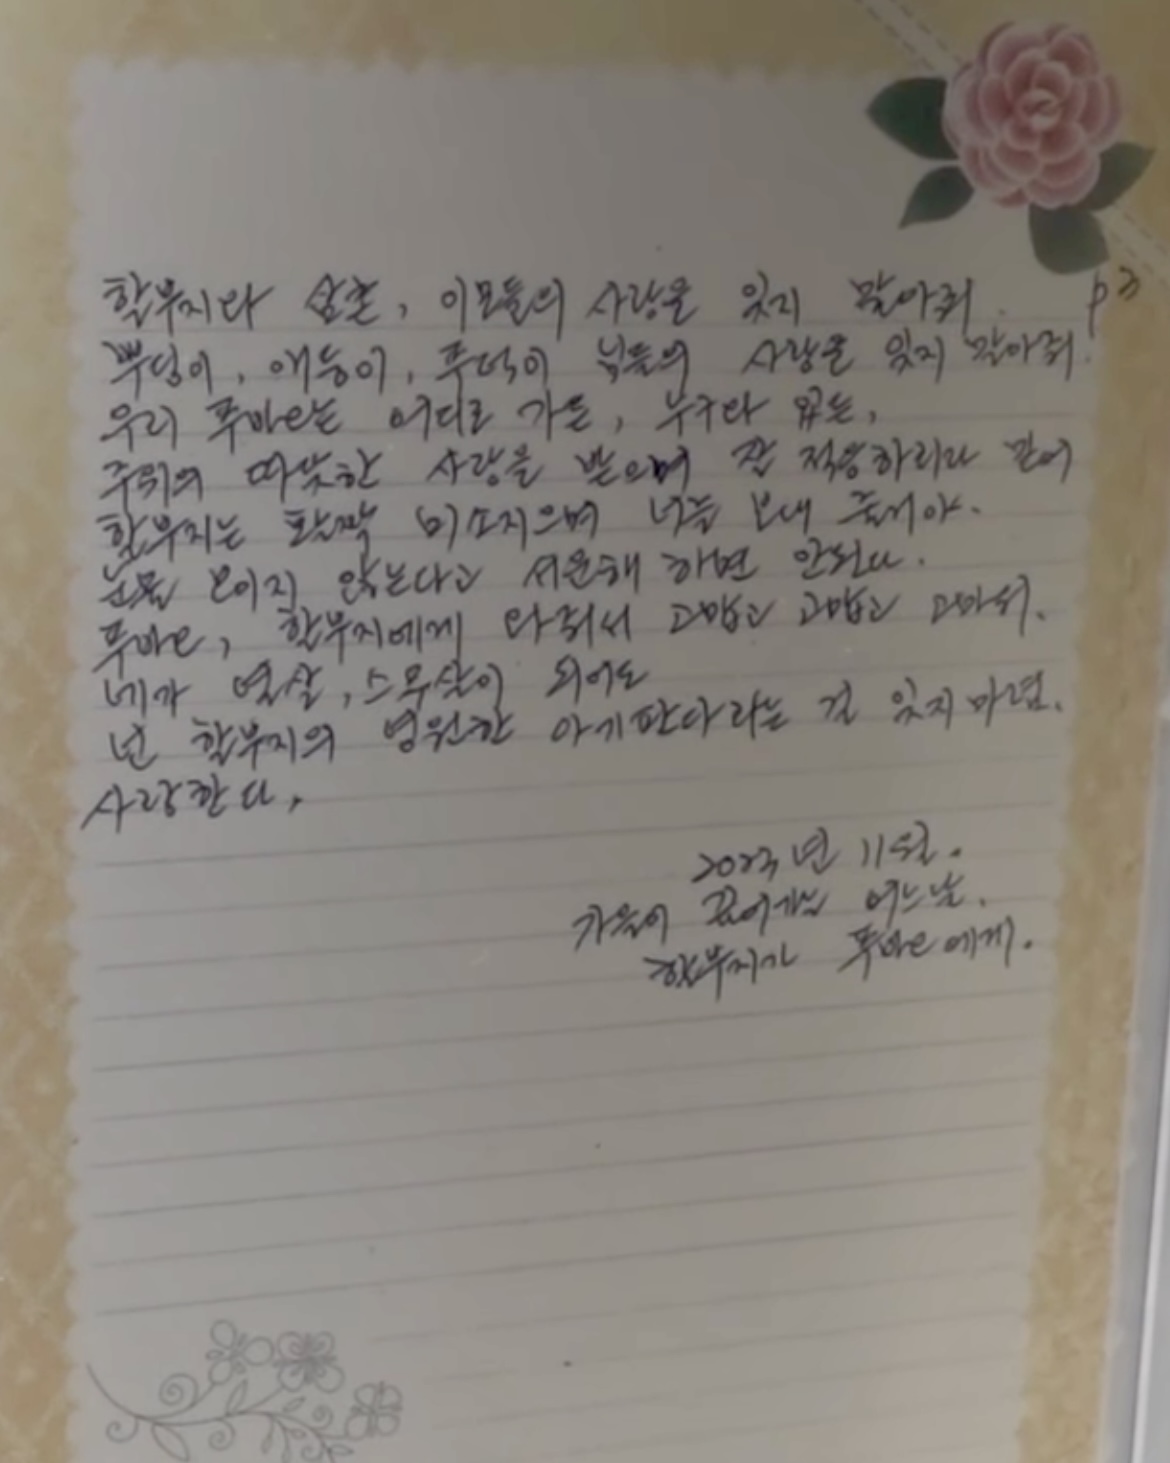 할부지와 삼촌, 이모들의 사랑을 잊지 말아줘. p3
뿌덩이, 애둥이, 푸덕이 님들의 사랑을 잊지 말아줘.
우리 푸바오는 어디로 가든, 누구와 있든,
주위의 따뜻한 사랑을 받으며 잘 적응하리라 믿어
할부지는 활짝 미소지으며 너를 보내 줄거야.
눈물 보이지 않는다고 서운해 하면 안된다.
푸바오, 할부지에게 와줘서 고맙고 고맙고 고마워.
네가 열살, 스무살이 되어도
넌 할부지의 영원한 아기판다라는 걸 잊지마렴.
사랑한다,
2023년 11월.
가을이 깊어가는 어느날.
할부지가 푸바오에게.